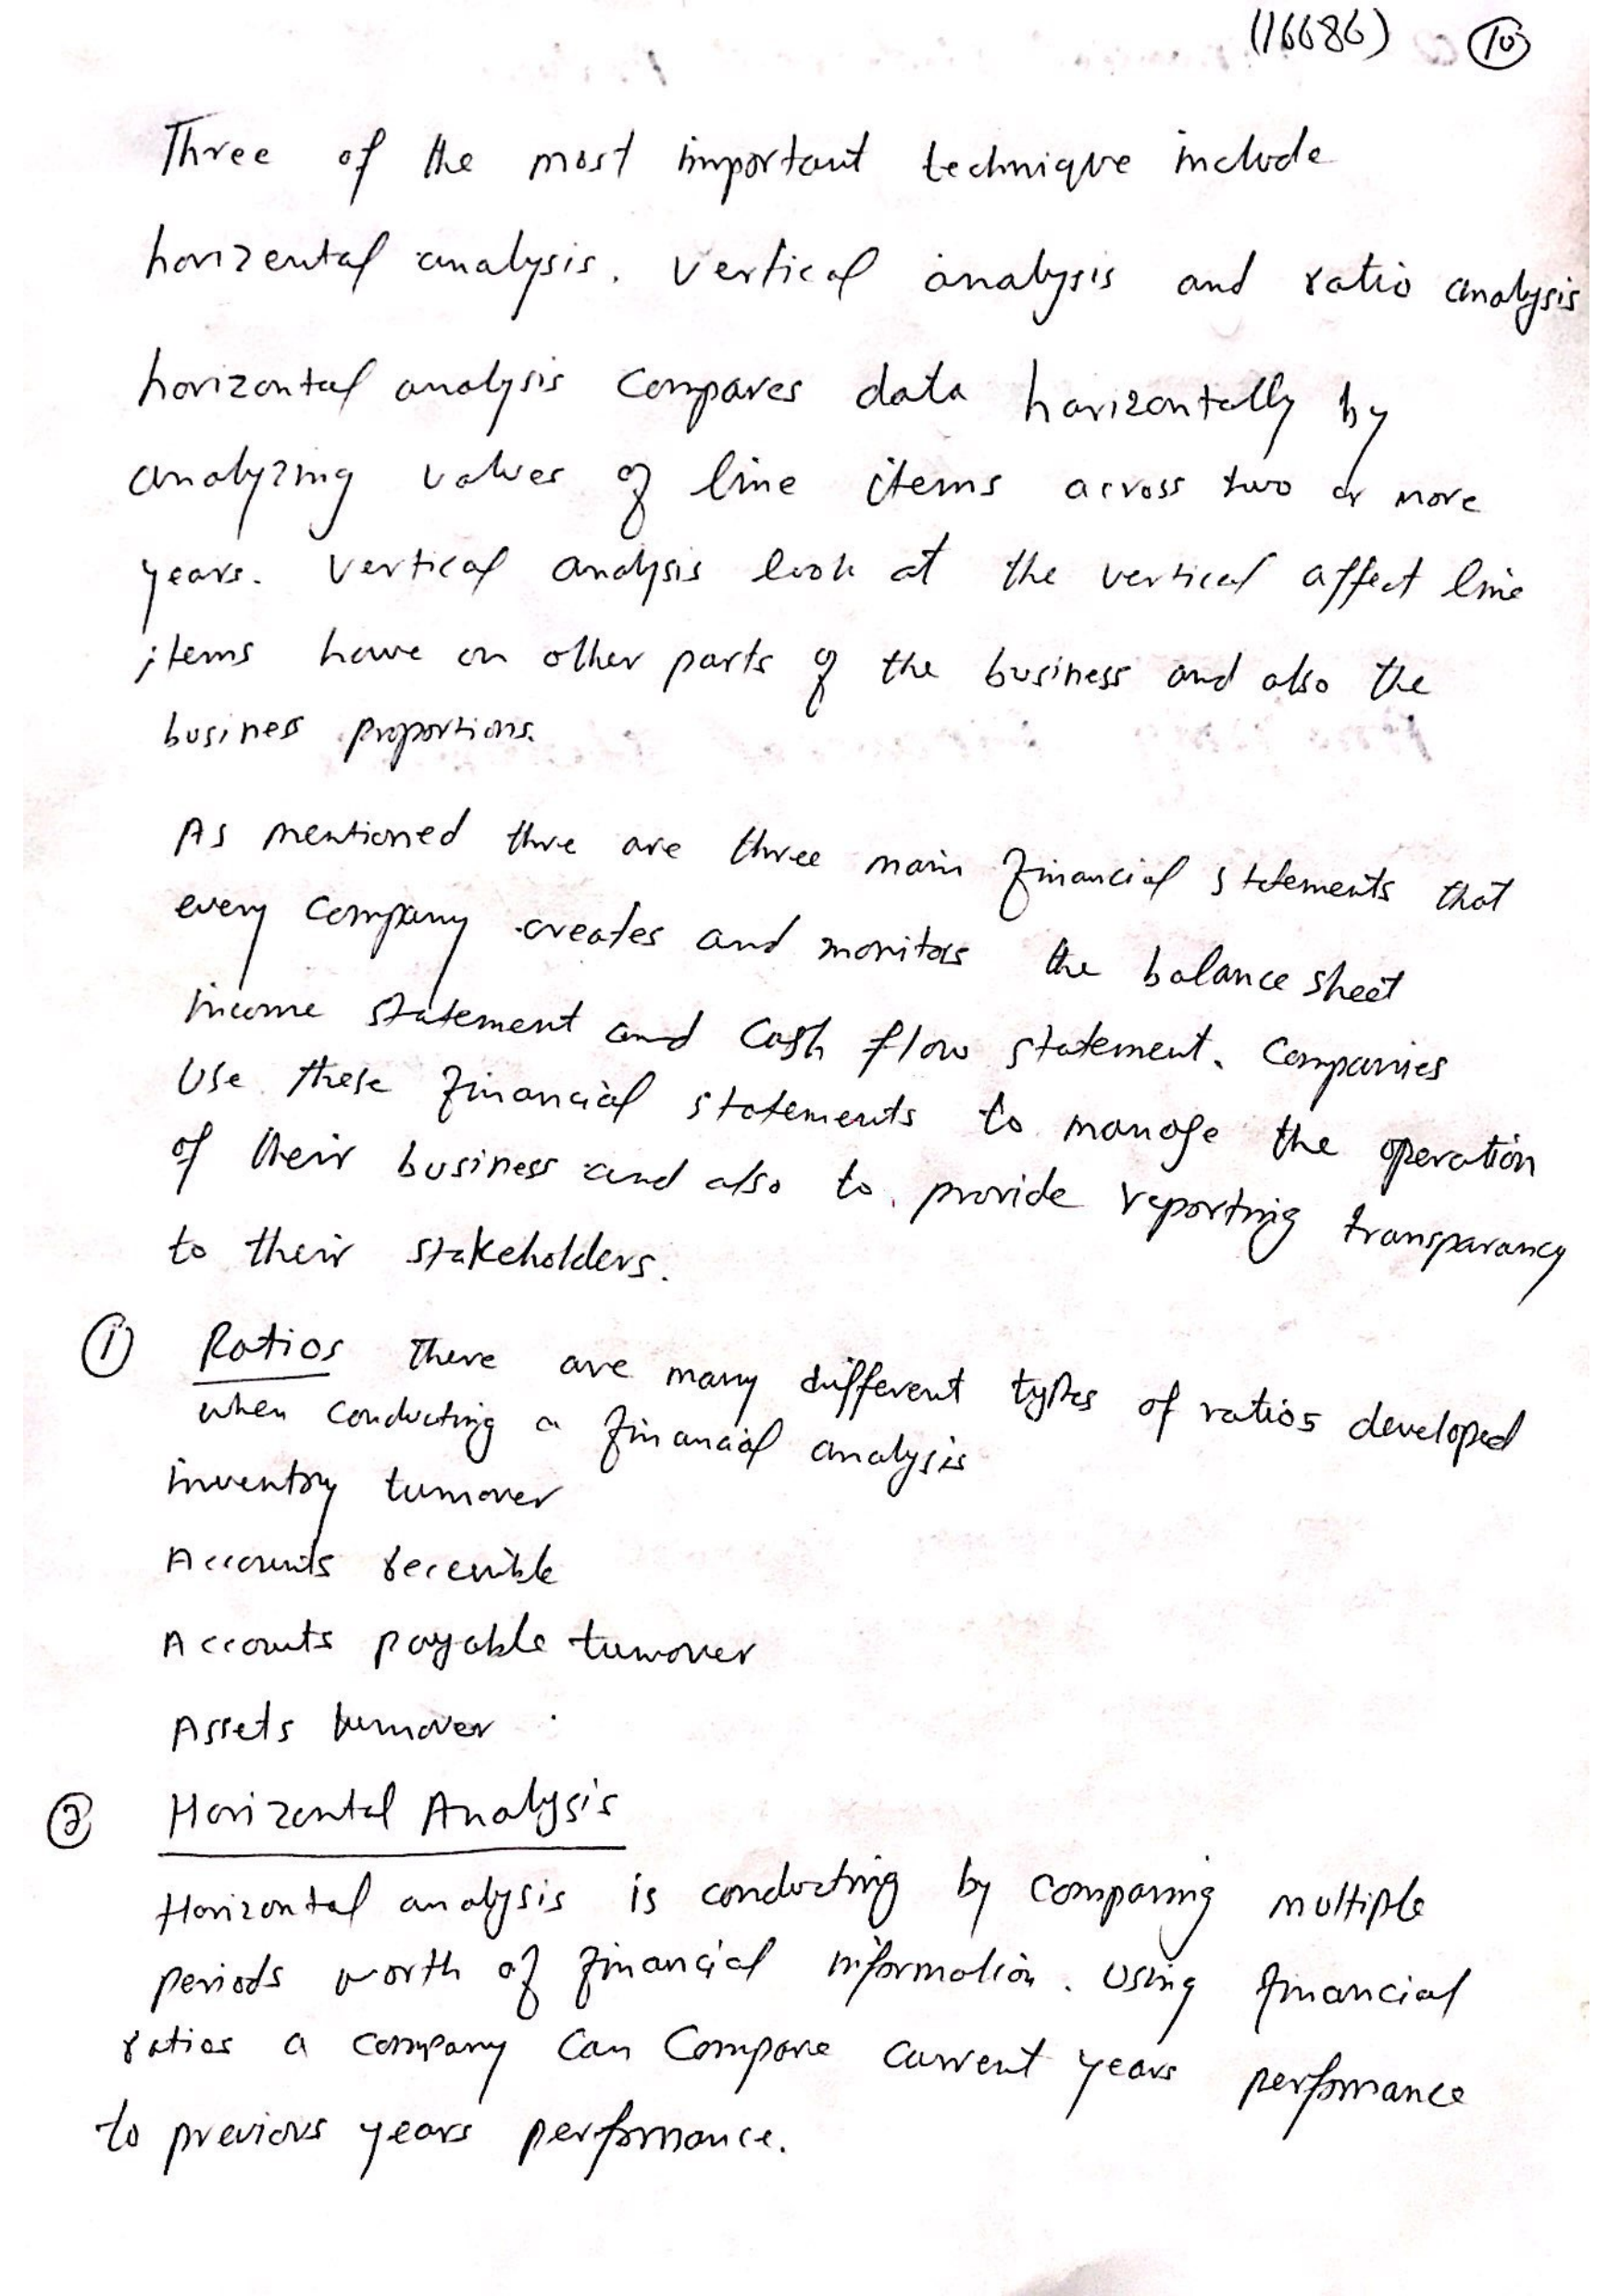 (16686) 10
Three of the most important technique include
horizental analysis. Vertical analysis and ratio analysis
horizontal analysis compares data horizontally by
analyzing values of line items across two or more
years. Vertical analysis look at the vertical affect line
items have on other parts of the business and also the
business proportions.
As mentioned thre are three main financial statements that
every company creates and monitors the balance sheet
income statement and cash flow statement. Companies
Use these financial statements to manage the operation
of their business and also to provide reporting transparancy
to their stakeholders.
1 Ratios There are many different types of ratios developed
when conducting a financial analysis
inventory turnover
Accounts
Accounts payable turnover
Assets turnover
2 Horizontal Analysis
Horizontal analysis is conducting by comparing multiple
periods worth of financial information. Using financial
ratios a company can compare current years performance
to previous years performance.